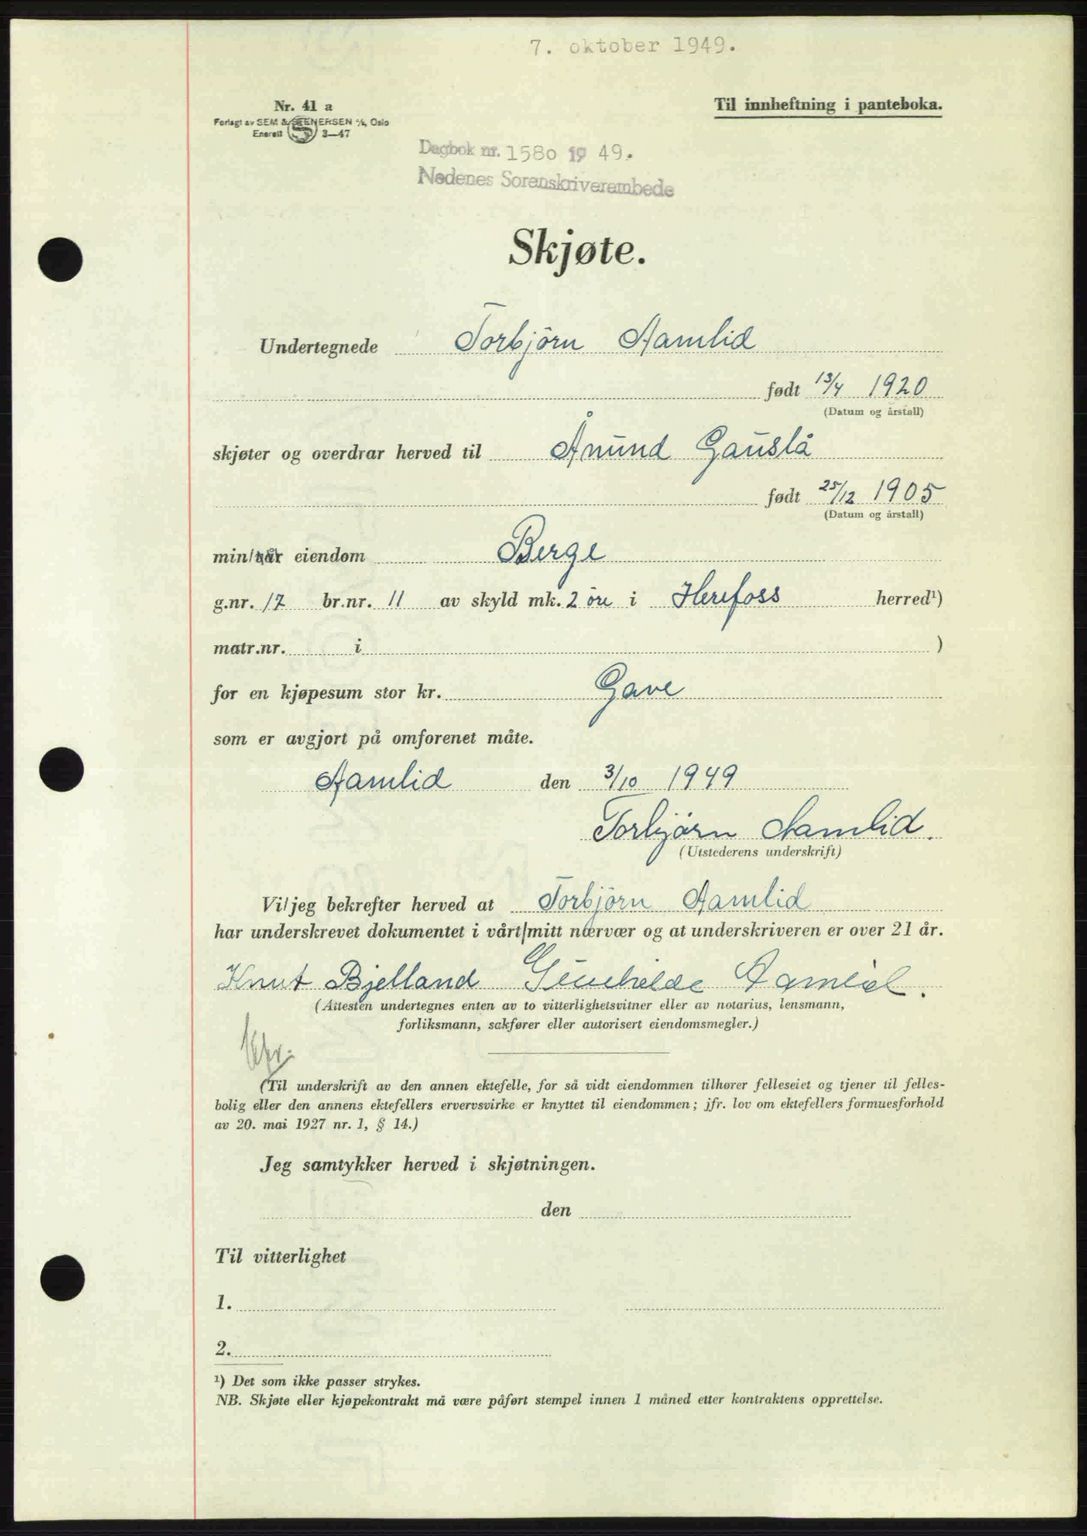 7. oktober 1949.
Nr. 41 a
Til innheftning i panteboka.
Forlagt av SEM & STENERSEN A/s, Oslo
Enerett S 3—47
Dagbok nr. 1580 1949.
Nedenes Sorenskriverembede
Skjøte.
Undertegnede Torbjörn Aamlid
født 13/4 1920
(Datum og årstall)
skjøter og overdrar herved til Ånund Gauslå
født 25/12 1905
(Datum og årstall)
min/vår eiendom Berge
g.nr. 17 br.nr. 11 av skyld mk. 2 öre i Herefoss herred¹)
matr.nr. i )
for en kjøpesum stor kr. Gave
som er avgjort på omforenet måte.
Aamlid den 3/10 1949
Torbjørn Aamlid.
(Utstederens underskrift)
Vi/jeg bekrefter herved at Torbjörn Aamlid
har underskrevet dokumentet i vårt/mitt nærvær og at underskriveren er over 21 år.
Knut Bjelland Gunhilde Aamlid.
(Attesten undertegnes enten av to vitterlighetsvitner eller av notarius, lensmann,
forliksmann, sakfører eller autorisert eiendomsmegler.)
(Til underskrift av den annen ektefelle, for så vidt eiendommen tilhører felleseiet og tjener til felles-
bolig eller den annens ektefellers ervervsvirke er knyttet til eiendommen; jfr. lov om ektefellers formuesforhold
av 20. mai 1927 nr. 1, § 14.)
Jeg samtykker herved i skjøtningen.
den
Til vitterlighet
1.
2.
¹) Det som ikke passer strykes.
NB. Skjøte eller kjøpekontrakt må være påført stempel innen 1 måned etter kontraktens opprettelse.